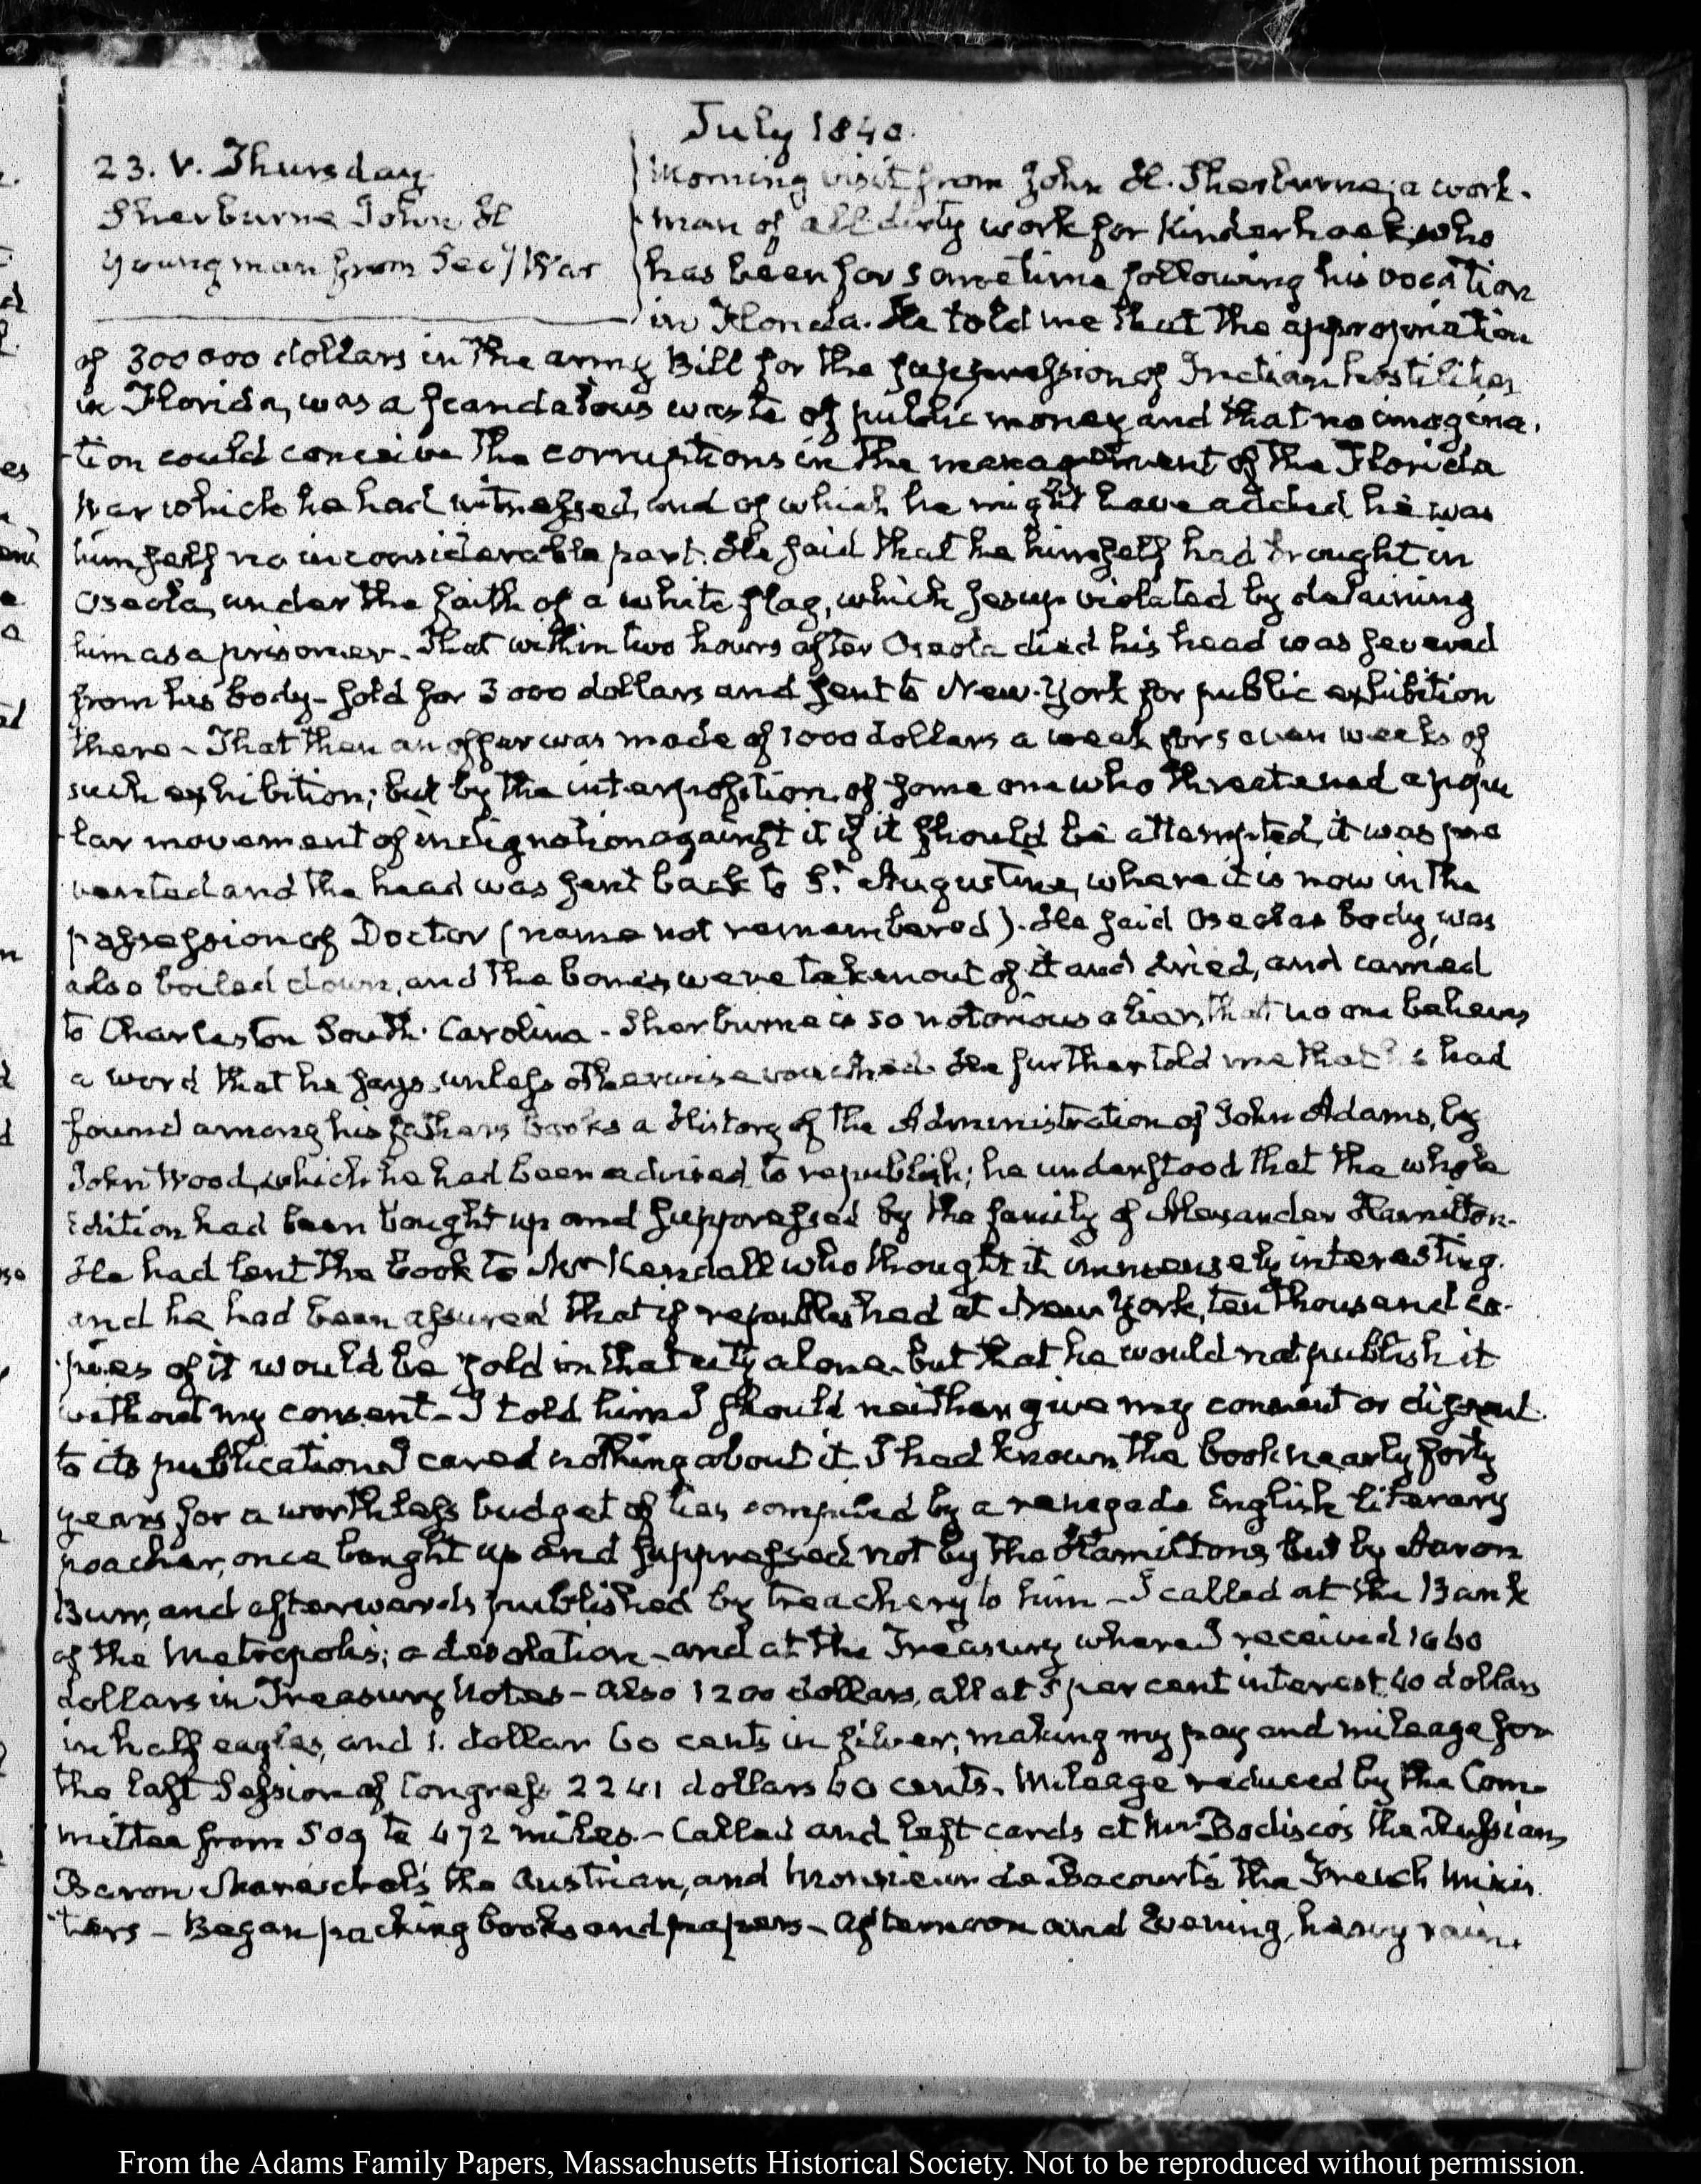 July 1840.
23. V. Thursday
Sherburne John H
Young man from Secy War
Morning visit from John H. Sherburne; a work-
man of all dirty work for Kinderhook, who
has been for sometime following his vocation
in Florida. He told me that the appropriation
of 300000 dollars in the army Bill for the suppression of Indian hostilities
in Florida, was a scandalous waste of public money and that no imagina-
tion could conceive the corruptions in the management of the Florida
War which he had witnessed, and of which he might have added he was
himself no inconsiderable part. He said that he himself had brought in
Oseola, under the faith of a white flag, which Jesup violated by detaining
him as a prisoner - That within two hours after Oseola died his head was severed
from his body - sold for 3000 dollars and sent to New-York for public exhibition
there - That then an offer was made of 1000 dollars a week for seven weeks of
such exhibition; but by the interposition of some one who threatened a popu
lar movement of indignation against it if it should be attempted, it was pre
vented and the head was sent back to St. Augustine, where it is now in the
possession of Doctor (name not remembered). He said Oseolas body, was
also boiled down, and the bones, were taken out of it and dried, and carried
to Charleston South Carolina - Sherburne is so notorious a liar, that no one believes
a word that he says, unless otherwise vouched. He further told me that he had
found among his fathers books a History of the Administration of John Adams, by
John Wood, which he had been advised to republish; he understood that the whole
Edition had been bought up and suppressed by the family of Alexander Hamilton.
He had lent the book to Mr Kendall who thought it immensely interesting.
and he had been assured that if republished at New York, ten thousand co-
pies of it would be sold in that city alone. but that he would not publish it
without my consent - I told him I should neither give my consent or dissent
to its publication I cared nothing about it. I had known the book nearly forty
years for a worthless budget of lies compiled by a renegade English literary
poacher, once bought up and suppressed not by the Hamiltons but by Aaron
Burr, and afterwards published by treachery to him - I called at the Bank
of the Metropolis; a desolation - and at the Treasury where I received
dollars in Treasury Notes - also 1200 dollars, all at 5 per cent interest, 40 dollars
in half eagles, and 1. dollar 60 cents in silver, making my pay and mileage for
the last Session of Congress 2241 dollars 60 cents. Mileage reduced by the Com-
mittee from 509 to 472 miles. - Called and left cards at Mr Bodisco's the Russian,
Baron Mareschal's the Austrian, and Monsieur de Bacourt's the French Minis
ters - Began packing books and papers - Afternoon and Evening, heavy rain.
From the Adams Family Papers, Massachusetts Historical Society. Not to be reproduced without permission.